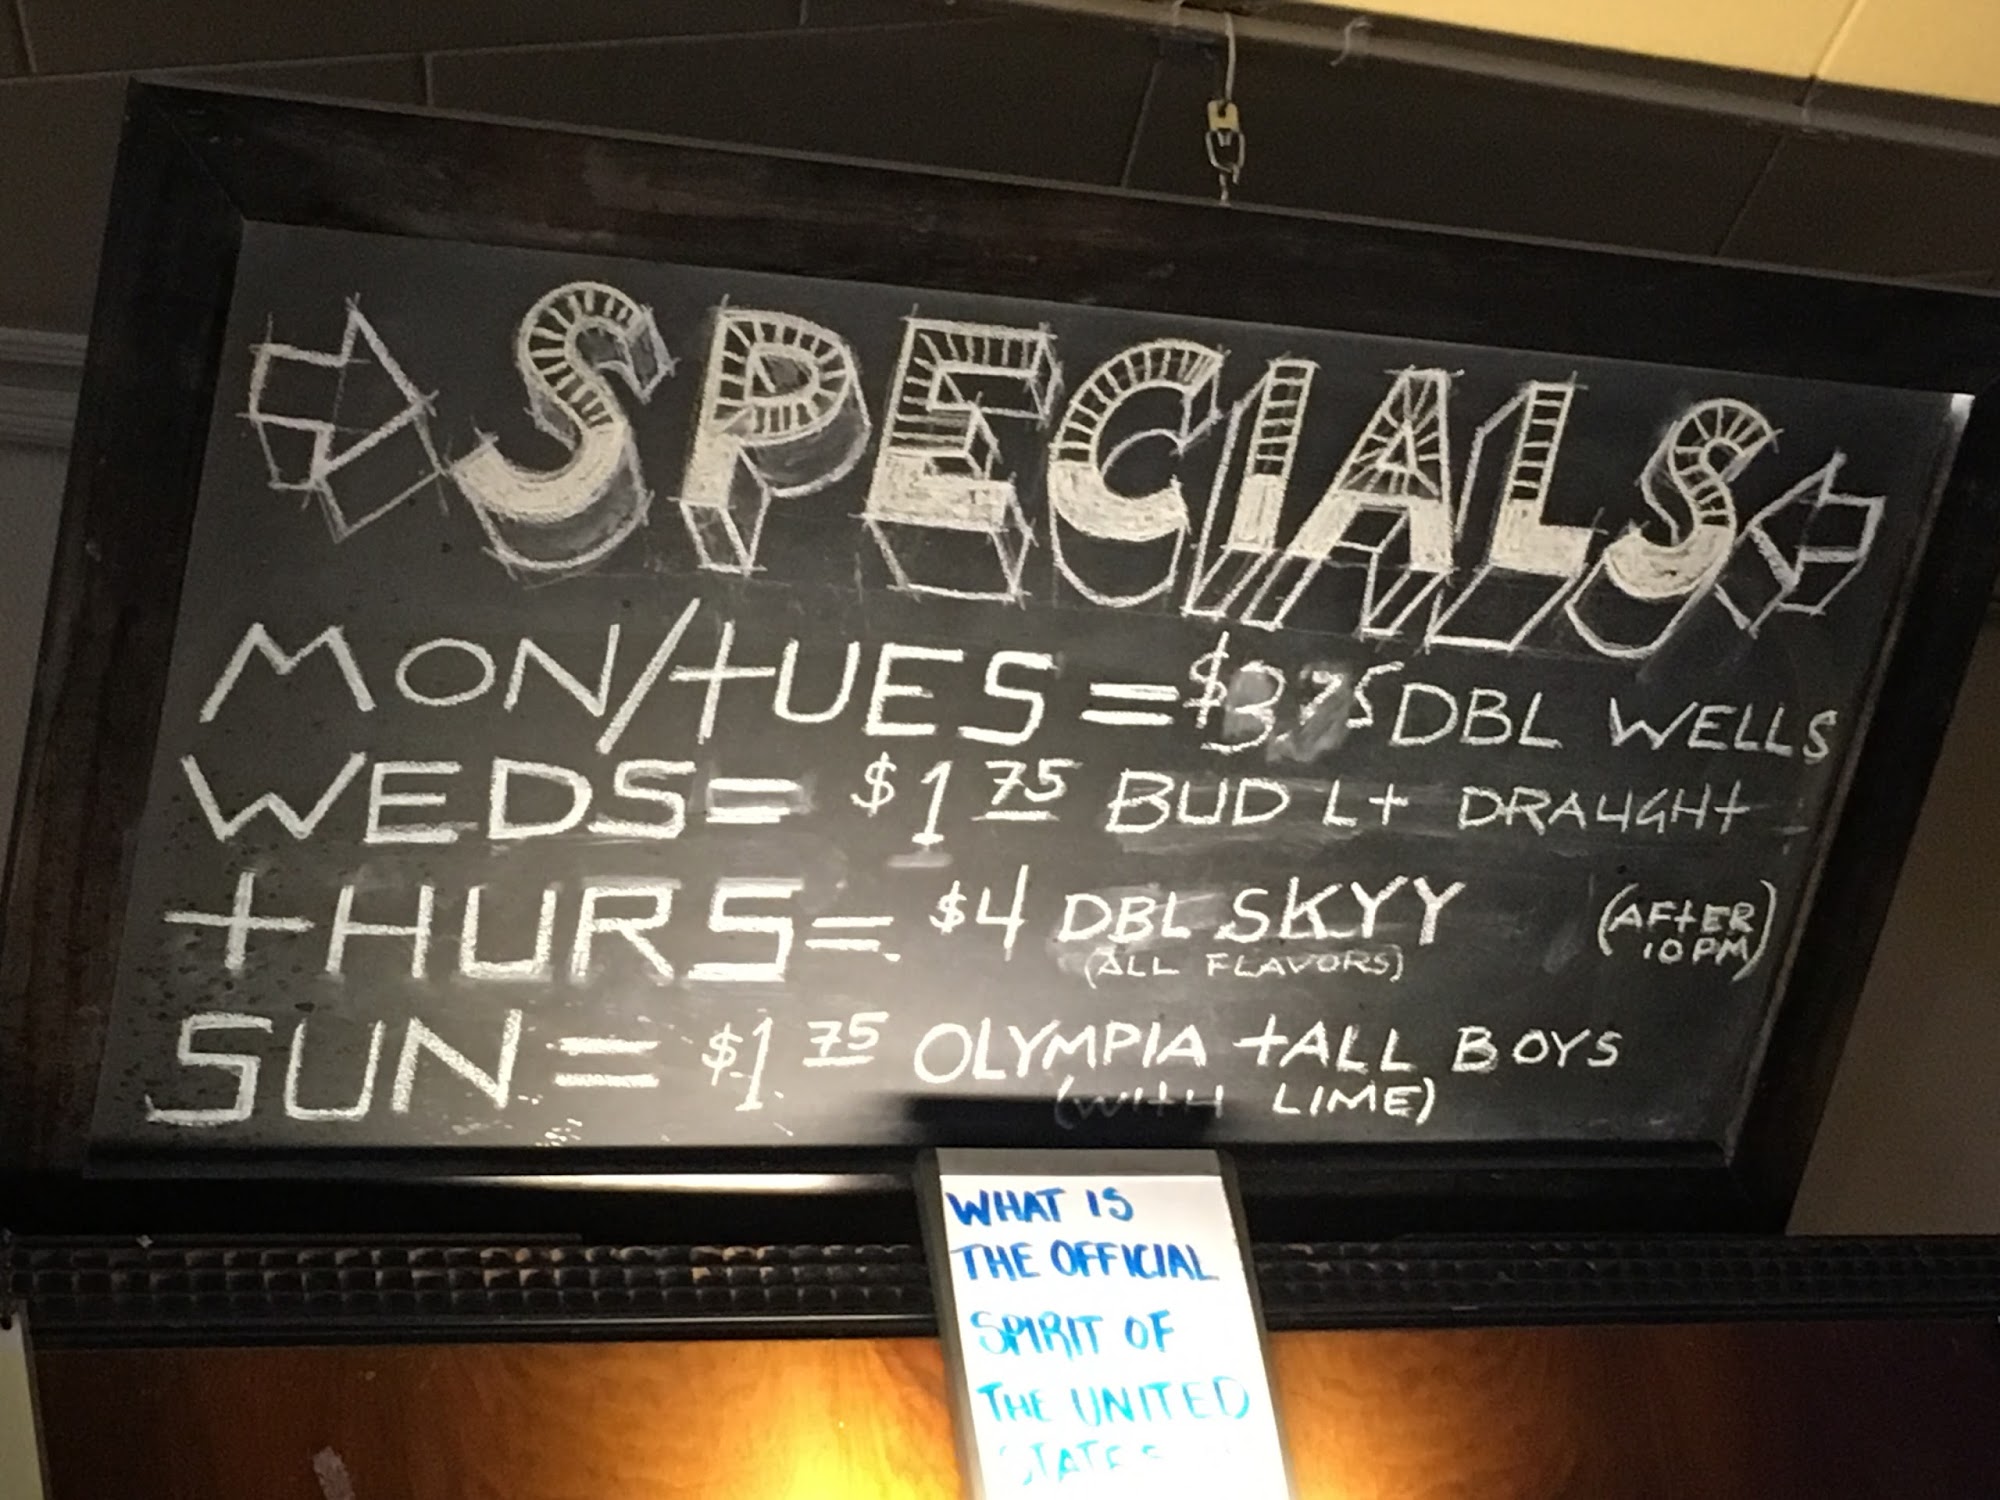 SPECIALS
MON/TUES = $3.75 DBL WELLS
WEDS = $1 75 BUD LT DRAUGHT
THURS = $4 DBL SKYY (AFTER
(ALL FLAVORS) 10PM)
SUN = $1 75 OLYMPIA TALL BOYS
(WITH LIME)
WHAT IS
THE OFFICIAL
SPIRIT OF
THE UNITED
STATES